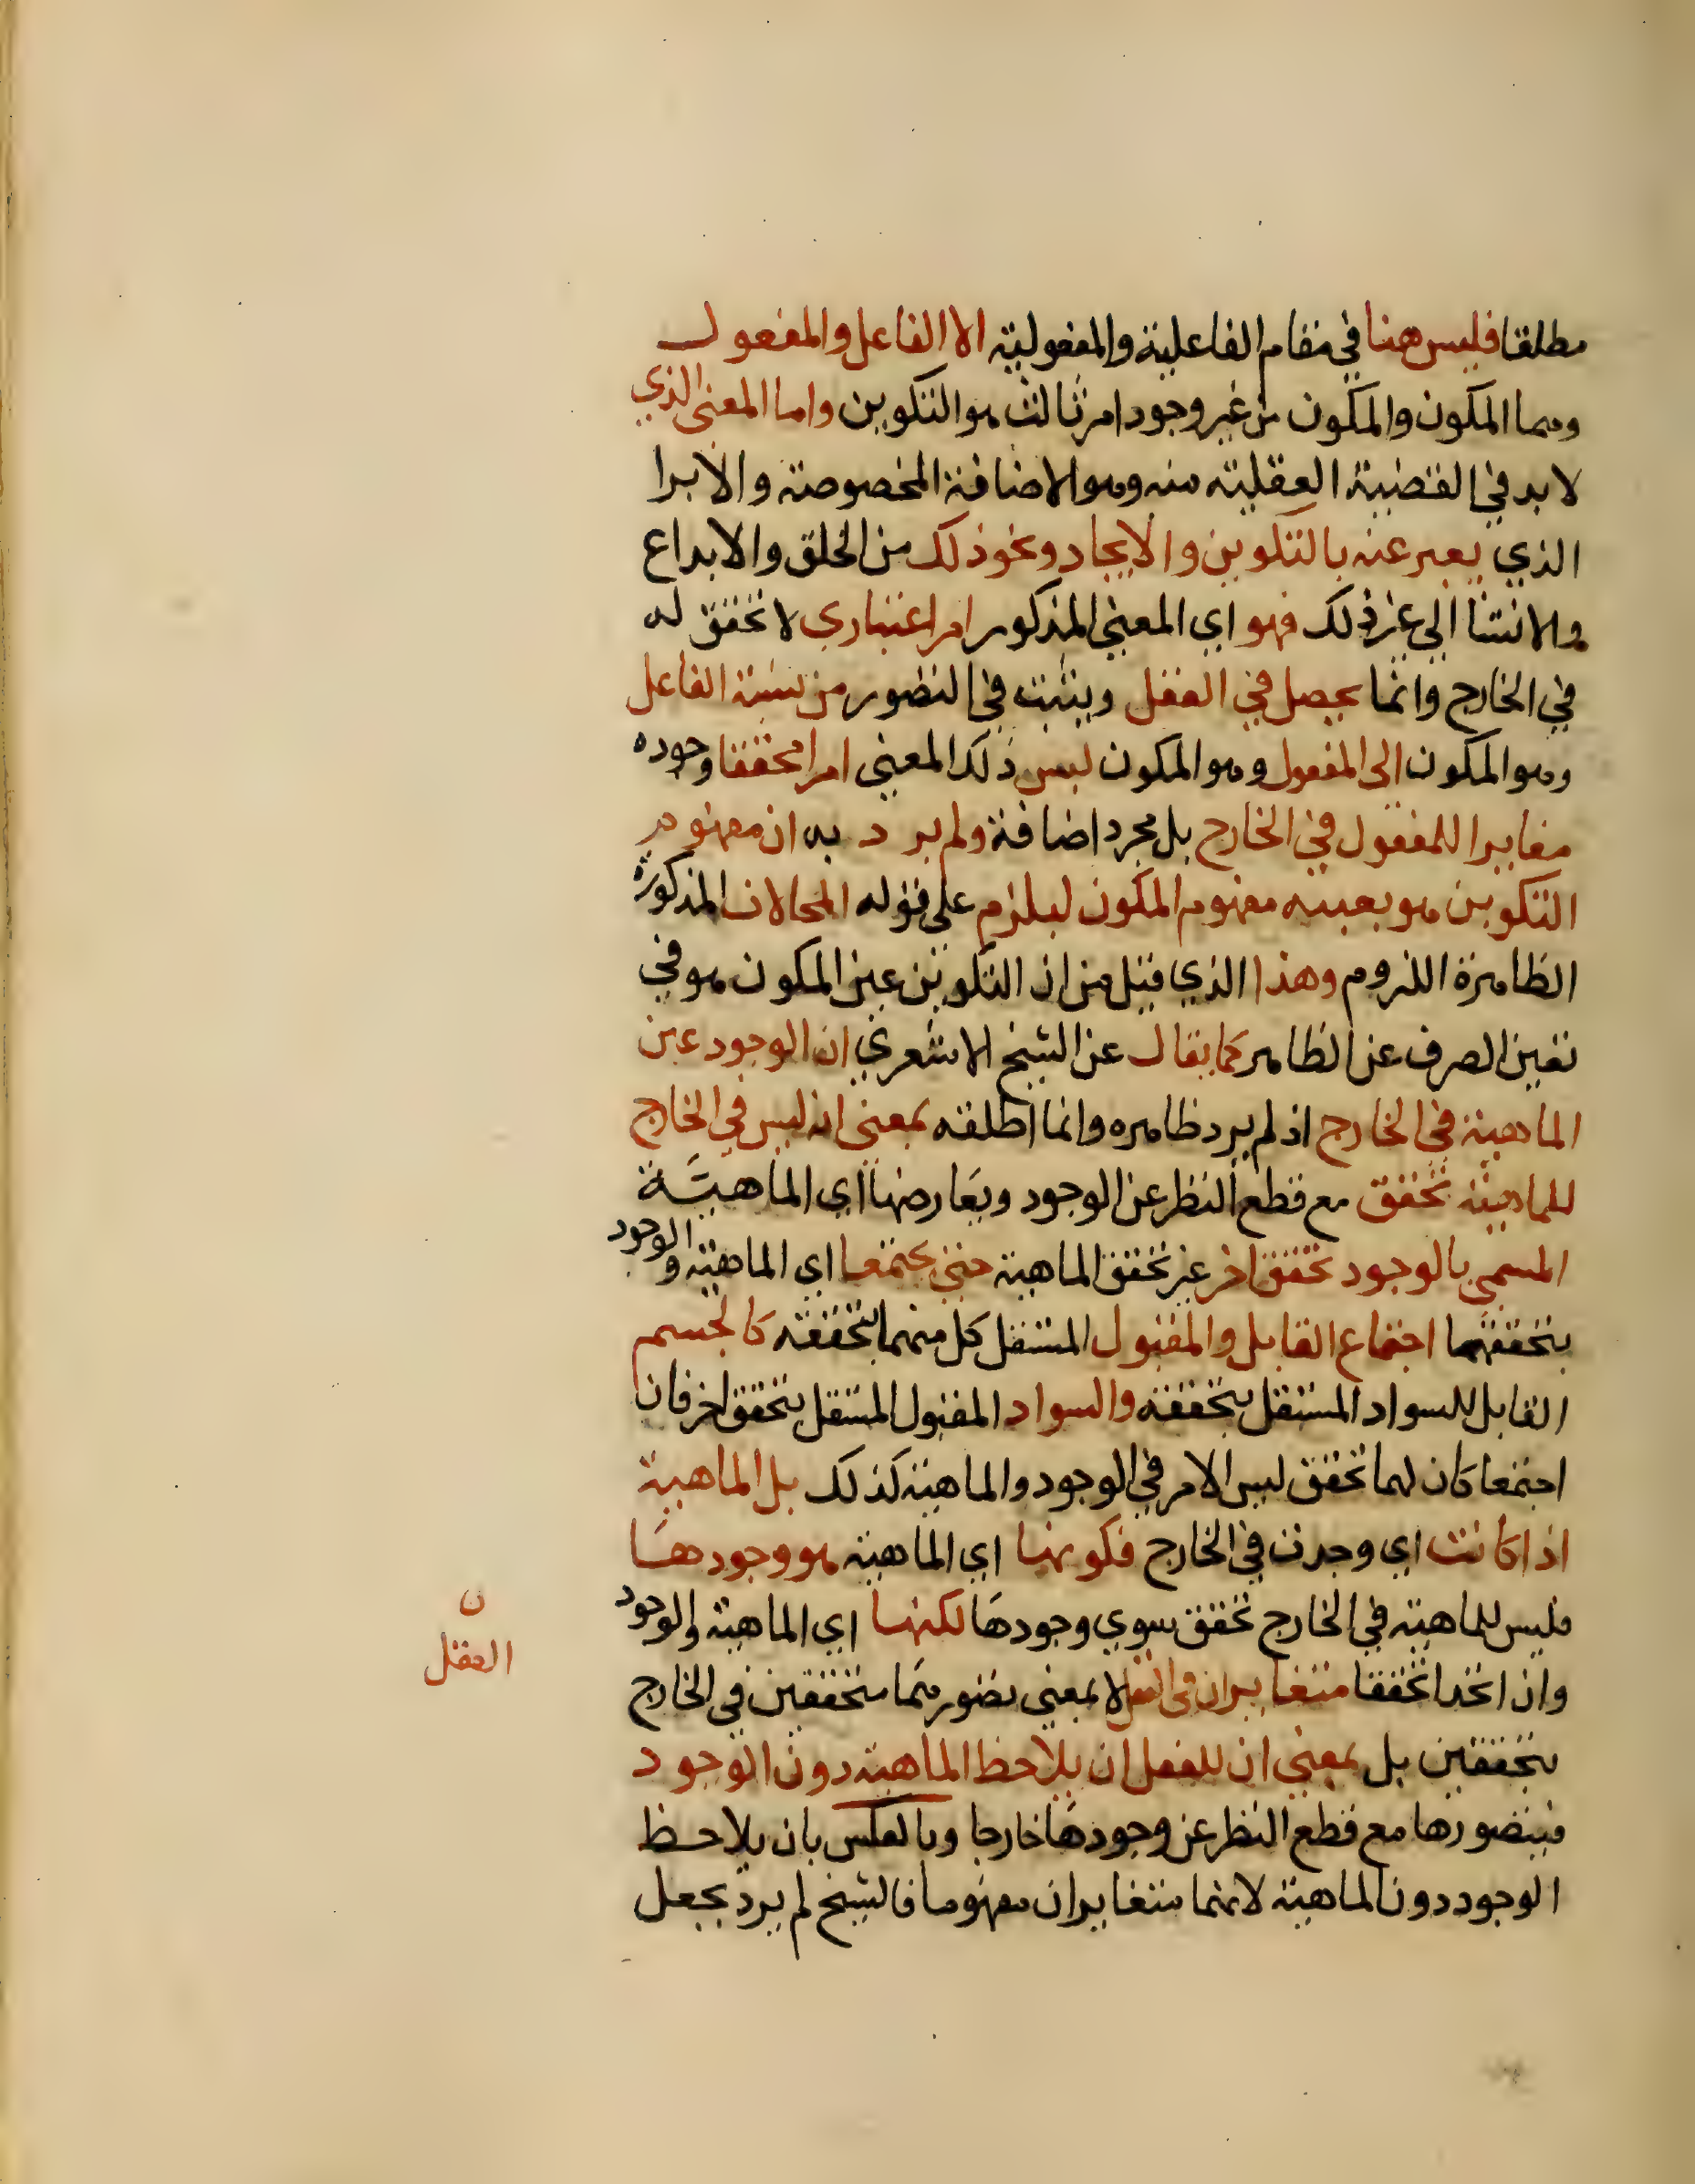 مطلقا فليس هنا في مقام الفاعلية والمفعولية الا الفاعل والمفعول
وهما المكون والمكون من غير وجود امر ثالث هو التكوين واما المعنى الذي
لا بد في القضية العقلية منه وهو الاضافة المخصوصة والابرا
الذي يعبر عنه بالتكوين والايجاد ونحو ذلك من الخلق والابداع
والانشا الى غير ذلك فهو اي المعنى المذكور امر اعتباري لا تحقق له
في الخارج وانما يحصل في العقل ويثبت في التصور من نسبة الفاعل
وهو المكون الى المفعول وهو المكون ليس ذلك المعنى امرا محققا وجوده
مغايرا للمفعول في الخارج بل مجرد اضافة ولم يرد به ان مفهوم
التكوين هو بعينه مفهوم المكون ليلزم على قوله المحالات المذكورة
الظاهرة اللزوم وهذا الذي قيل من ان التكوين عين المكون هو في
تعين الصرف عن الظاهر كما يقال عن الشيخ الاشعري ان الوجود عين
الماهية في الخارج اذ لم يرد ظاهره وانما اطلقه بمعنى انه ليس في الخارج
للماهية تحقق مع قطع النظر عن الوجود وبعارضها اي الماهية
المسمى بالوجود تحقق اخر غير تحقق الماهية حتى يجتمعا اي الماهية والوجود
بتحققهما اجتماع القابل والمقبول المستقل كل منهما بتحققه كالجسم
القابل للسواد المستقل بتحققه والسواد المقبول المستقل بتحقق اخر فان
اجتمعا كان لهما تحقق ليس الامر في الوجود والماهية كذلك بل الماهية
اذا كانت اي وجدت في الخارج فكونها اي الماهية هو وجودها
فليس للماهية في الخارج تحقق سوي وجودها لكنها اي الماهية والوجود
وان اتحدا تحققا متغايران في العقل لا بمعنى تصورهما متحققين في الخارج
بتحققين بل بمعنى ان للعقل ان يلاحظ الماهية دون الوجود
فيتصورها مع قطع النظر عن وجودها خارجا وبالعكس بان يلاحظ
الوجود دون الماهية لانهما متغايران مفهوما فالشيخ لم يرد بجعل
ن
العقل